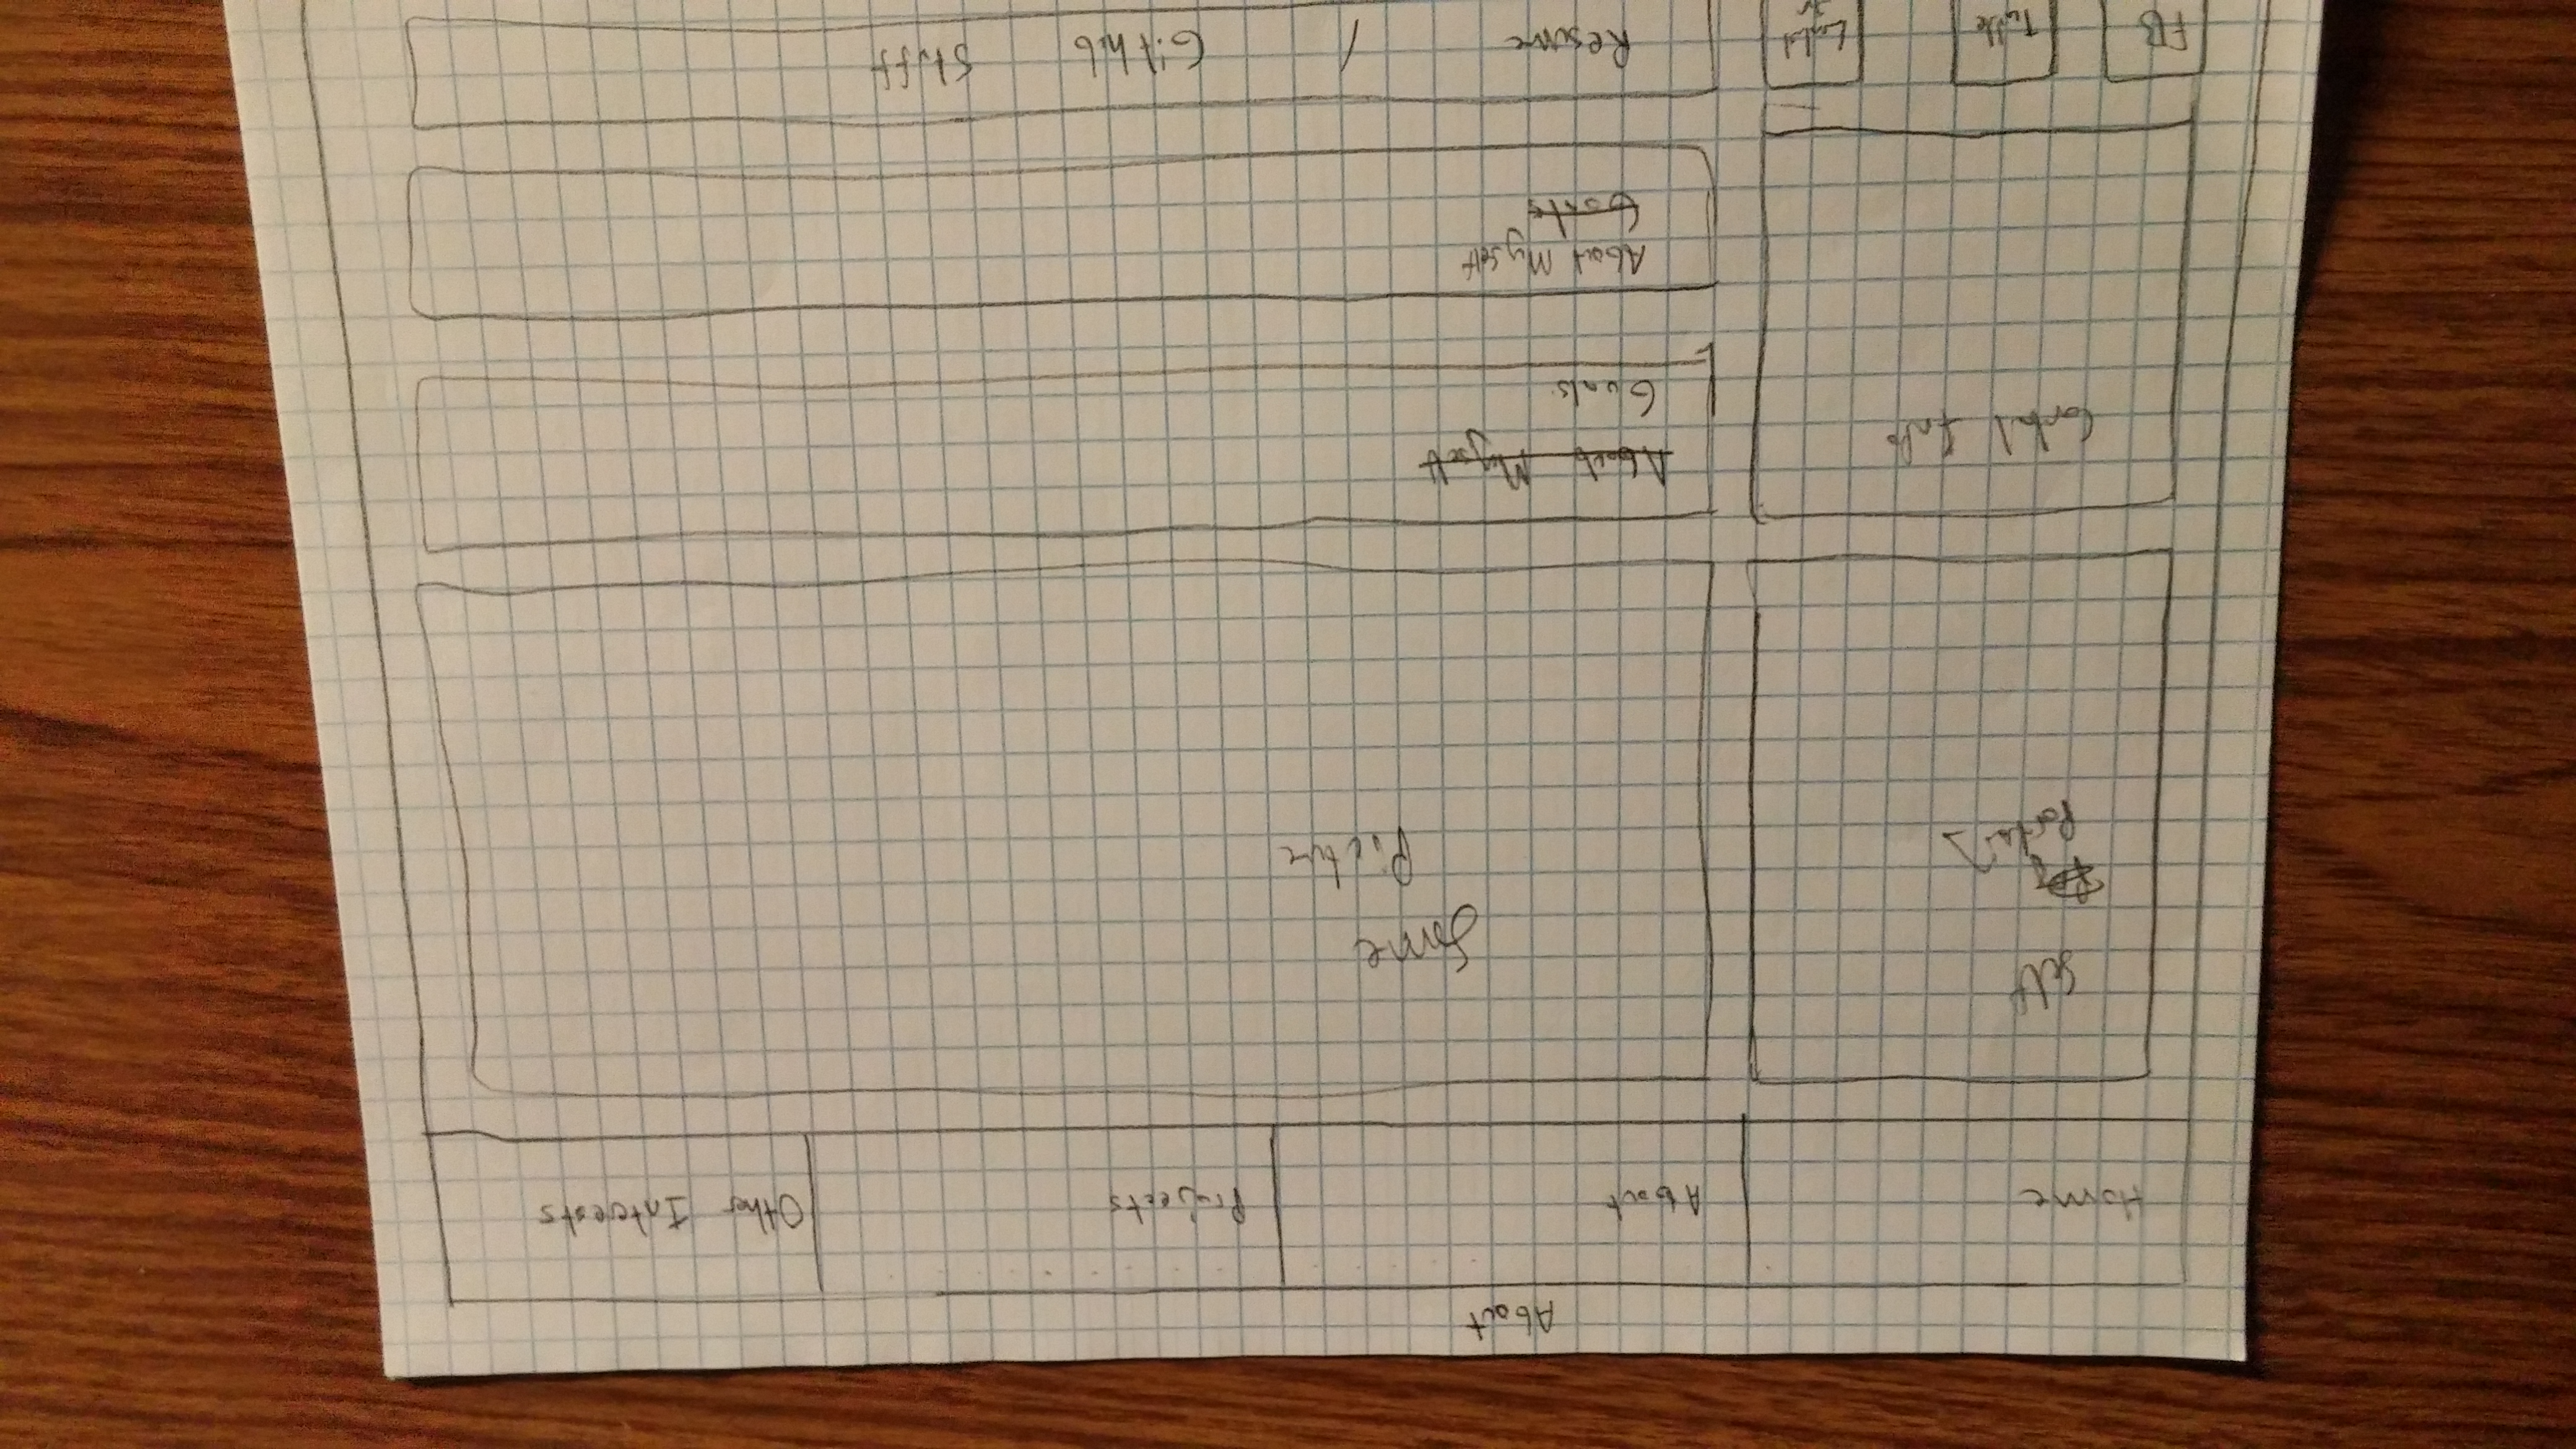 About
Home
About
Projects
Other Interests
Self
Portrait
Some
Picture
Contact Info
About Myself
Goals
About Myself
Goals
FB
Resume / Github Stuff